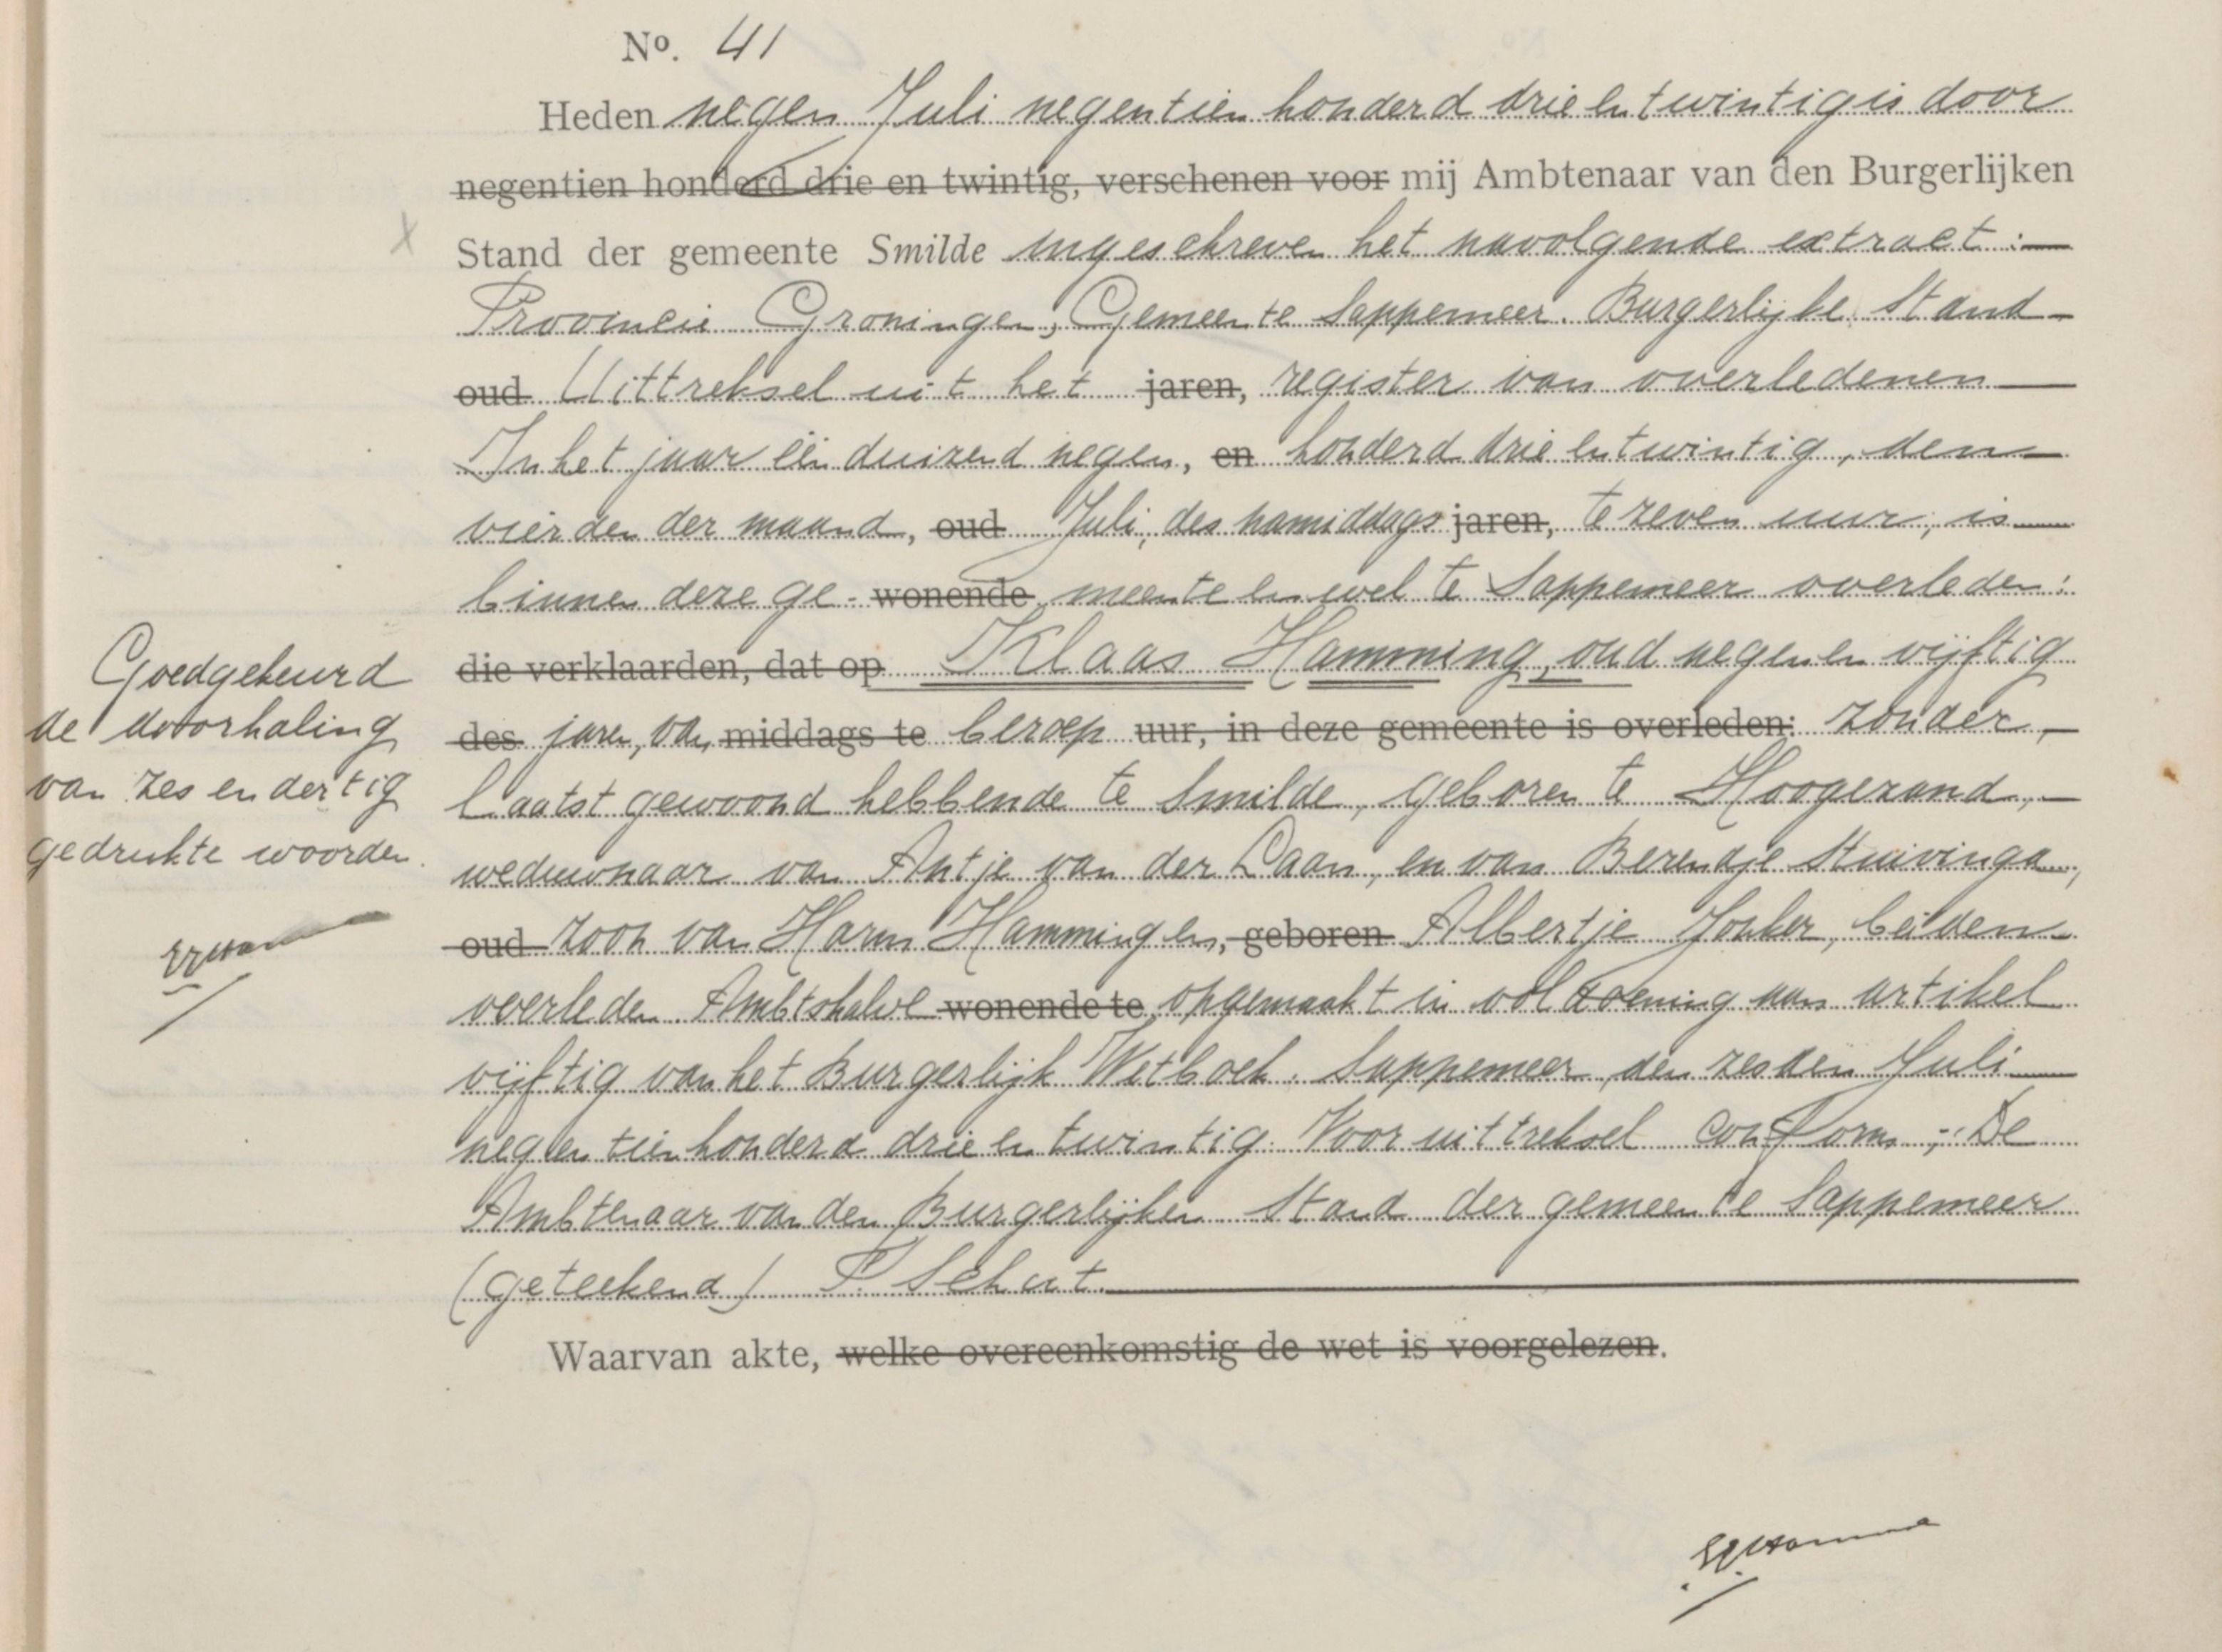 No. 41
Heden negen Juli negentien honderd drie en twintig is door
negentien honderd drie en twintig, verschenen voor mij Ambtenaar van den Burgerlijken
Stand der gemeente Smilde ingeschreven het navolgende extract :—
Provincie Groningen, Gemeente Sappemeer. Burgerlijke Stand —
oud Uittreksel uit het jaren, register van overledenen —
In het jaar een duizend negen, en honderd drie en twintig, den —
vierden der maand, oud Juli, des namiddags jaren, te zeven uur, is —
binnen deze ge- wonende meente en wel te Sappemeer overleden:
die verklaarden, dat op Klaas Hamming, oud negen en vijftig
des jaren, van middags te beroep uur, in deze gemeente is overleden: zonder, —
laatst gewoond hebbende te Smilde, geboren te Hoogezand, —
weduwnaar van Antje van der Laan, en van Berendje Stuivinga,
oud zoon van Harm Hamming en, geboren Albertje Jonker, beiden
overleden Ambtshalve wonende te opgemaakt in voldoening aan artikel
vijftig van het Burgerlijk Wetboek. Sappemeer, den zesden Juli —
negentienhonderd drie en twintig. Voor uittreksel conform, De
Ambtenaar van den Burgerlijken Stand der gemeente Sappemeer
(geteekend) P. Schut. —
Waarvan akte, welke overeenkomstig de wet is voorgelezen.
Goedgekeurd
de doorhaling
van zes en dertig
gedrukte woorden.